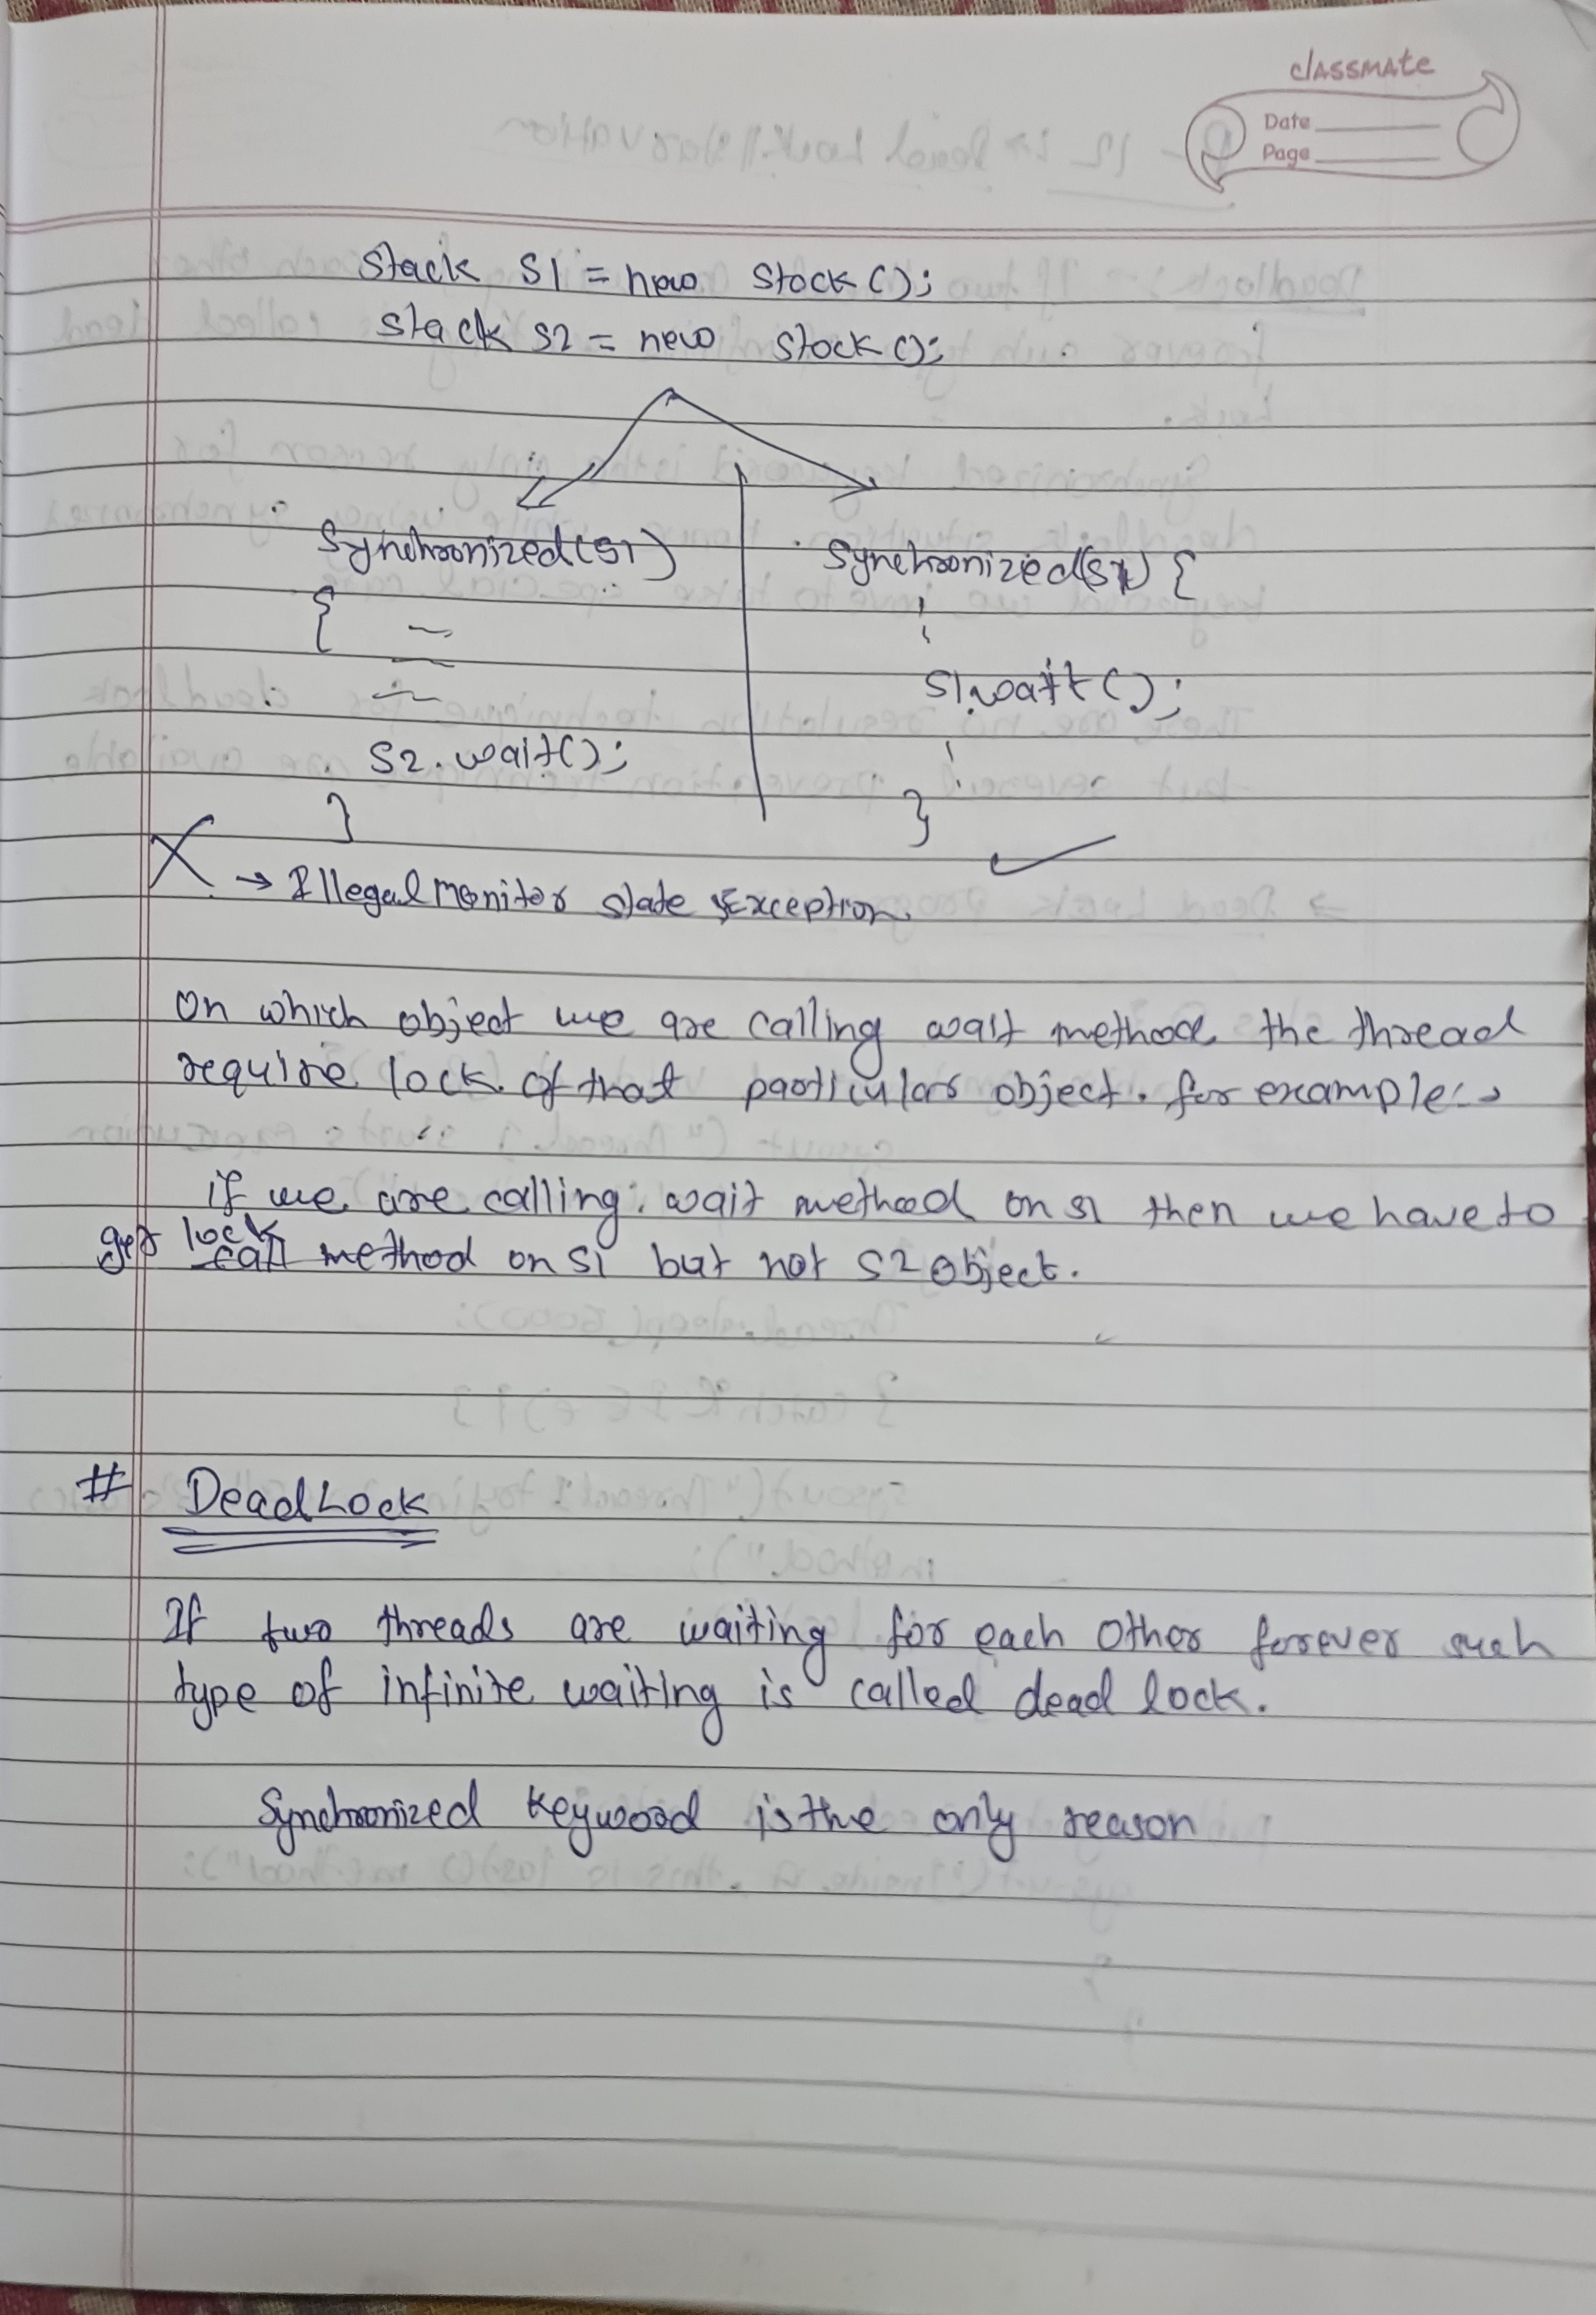 classmate
Date
Page
Stack S1 = new Stack();
Stack S2 = new Stack();
Synchronized(S1)
{
S2.wait();
}
Synchronized(S1) {
S1.wait();
}
X → IllegalMonitor state Exception
On which object we are calling wait method the thread
require lock of that particular object. for example:→
if we are calling wait method on s1 then we have to
get lock
call method on s1 but not s2 object.
# DeadLock
If two threads are waiting for each other forever such
type of infinite waiting is called dead lock.
Synchronized keyword is the only reason